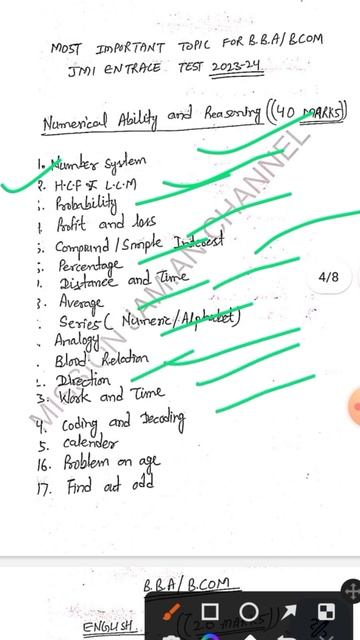 MOST IMPORTANT TOPIC FOR B.B.A/B.COM
JMI ENTRACE TEST 2023-24
Numerical Ability and Reasoning ((40 MARKS))
1. Number System
2. H.C.F & L.C.M
Probability
Profit and loss
Compound/Smple Interest
Percentage
Distance and Time
Average
Series (Numeric/Alphabet)
Analogy
Blood Relation
Direction
3. Work and Time
4. Coding and Decoding
5. Calender
16. Problem on age
17. Find out odd
4/8
JAMIAN CHANNEL
B.B.A/B.COM
ENGLISH ((20 MARKS))